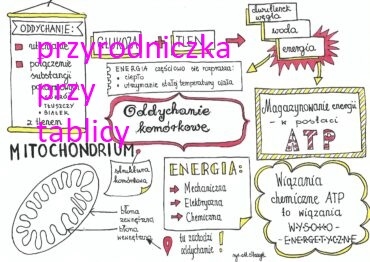 ODDYCHANIE:
utlenianie
połączenie
substancji
TŁUSZCZY
BIAŁEK
z tlenem
GLUKOZA
TLEN
dwutlenek
węgla
woda
energia
ENERGIA częściowo się rozprasza:
ciepło
utrzymanie stałej temperatury ciała
przyrodniczka
przy
tablicy
Oddychanie
komórkowe
Magazynowanie energii
- w postaci
ATP
MITOCHONDRIUM
struktura
komórkowa
błona
zewnętrzna
błona
wewnętrzna
ENERGIA:
Mechaniczna
Elektryczna
Chemiczna
tu zachodzi
oddychanie!
Wiązania
chemiczne ATP
to wiązania
WYSOKO-
-ENERGETYCZNE